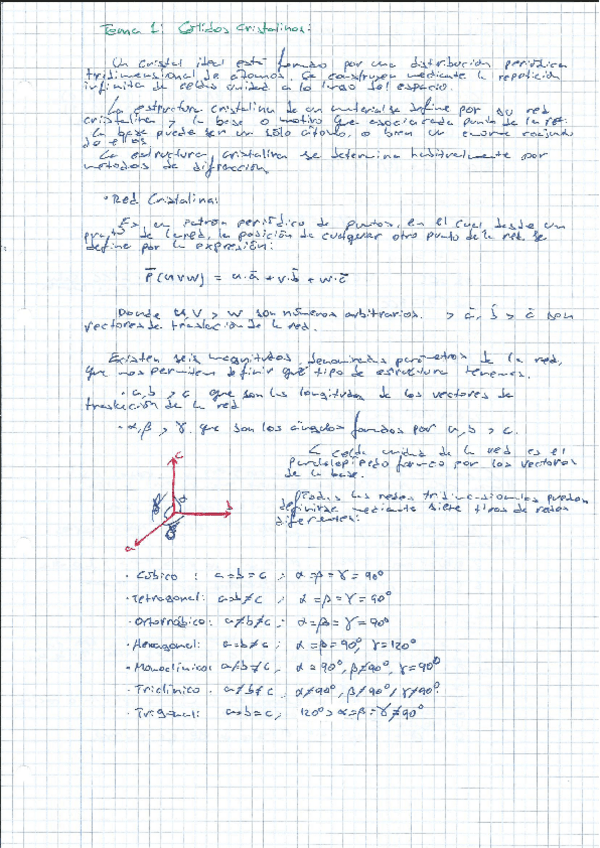 Tema 1: Sólidos Cristalinos:
Un cristal ideal está formado por una distribución periódica
tridimensional de átomos. Se construyen mediante la repetición
infinita de celdas unidad a lo largo del espacio.
La estructura cristalina de un material se define por su red
cristalina y la base o motivo que asocia cada punto de la red.
La base puede ser un sólo átomo, o bien un enorme conjunto
de ellos
La estructura cristalina se determina habitualmente por
métodos de difracción
· Red Cristalina:
Es un patrón periódico de puntos, en el cual desde un
punto de la red, la posición de cualquier otro punto de la red se
define por la expresión:
r̄ (uvw) = u·ā + v·b̄ + w·c̄
Donde u, v y w son números arbitrarios. y ā, b̄ y c̄ son
vectores de traslación de la red.
Existen seis magnitudes, denominadas parámetros de la red,
que nos permiten definir qué tipo de estructura tenemos.
· a, b y c que son las longitudes de los vectores de
traslación de la red
· α, β y γ que son los ángulos formados por a, b y c.
c
α
β
γ
b
a
La celda unidad de la red es el
paralelepípedo formado por los vectores
de la base.
Todas las redes tridimensionales pueden
definirse mediante siete tipos de redes
diferentes:
· Cúbico: a=b=c ; α=β=γ=90°
· Tetragonal: a=b≠c ; α=β=γ=90°
· Ortorrómbico: a≠b≠c ; α=β=γ=90°
· Hexagonal: a=b≠c ; α=β=90°, γ=120°
· Monoclínico: a≠b≠c, α=90°, β≠90°, γ=90°
· Triclínico. a≠b≠c, α≠90°, β≠90°, γ≠90°
· Trigonal: a=b=c, 120°>α=β=γ≠90°